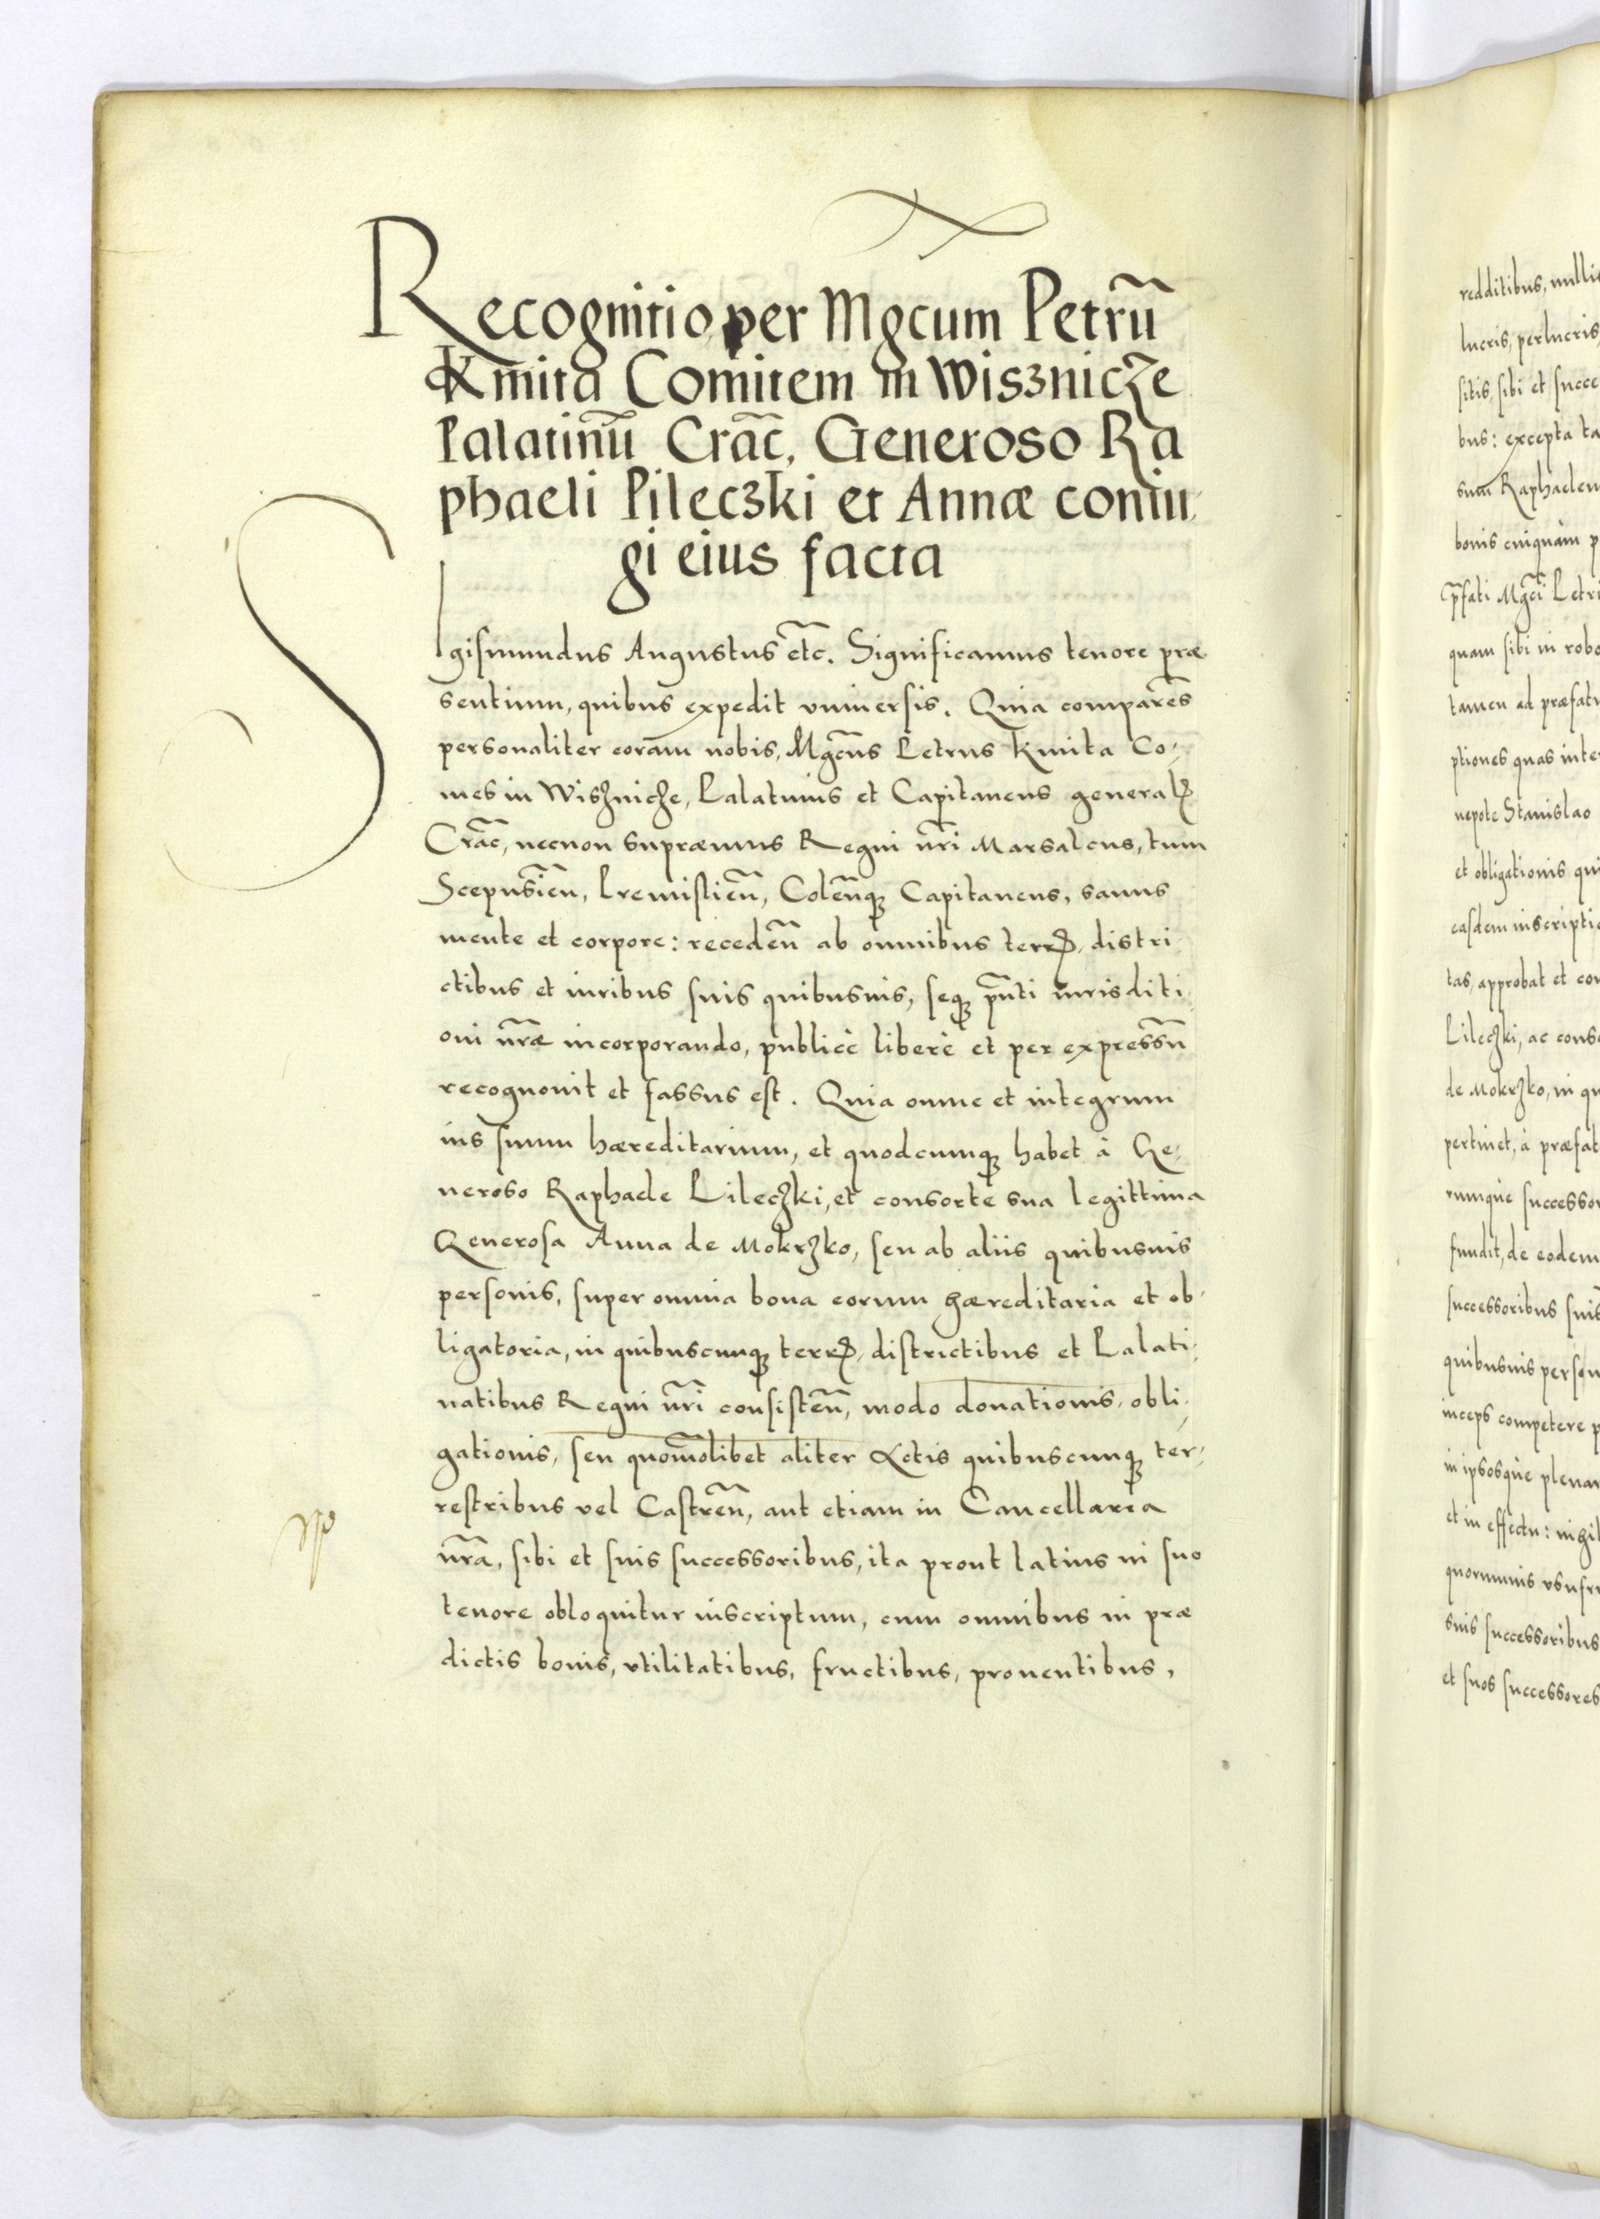 Recognitio per Mgcum Petrū
Kmita Comitem in Wisznicze
Palatinū Crac̄, Generoso Ra
phaeli Pileczki et Annæ coniu,
gi eius facta
Sigismundus Augustus etc̄. Significamus tenore præ
sentium, quibus expedit vniuersis. Quia comparēs
personaliter coram nobis, Mgcūs Petrus Kmita Co,
mes in Wisznicze, Palatinus et Capitaneus general
Crac̄, necnon supræmus Regni nr̄i Marsalcus, tum
Scepusień, Premislień, Coleńq; Capitaneus, sanus
mente et corpore: recedeń ab omnibus terr, distri,
ctibus et iuribus suis quibusuis, seq; pn̄ti iurisditi,
oni nr̄æ incorporando, publicè liberè et per expressū
recognouit et fassus est. Quia omne et integrum
ius suum hæreditarium, et quodcumq; habet à Ge,
neroso Raphaele Pileczki, et consorte sua legittima
Generosa Anna de Mokrzko, seu ab aliis quibusuis
personis, super omnia bona eorum hæreditaria et ob,
ligatoria, in quibuscunq; terr, districtibus et Palati,
natibus Regni nr̄i consisteń, modo donationis, obli,
gationis, seu quom̄olibet aliter Actis quibuscunq; ter,
restribus vel Castreń, aut etiam in Cancellaria
nr̄a, sibi et suis successoribus, ita prout latius in suo
tenore obloquitur inscriptum, cum omnibus in præ
dictis bonis, vtilitatibus, fructibus, prouentibus,
redditibus, nulli
lucris, perlucris,
sitis, sibi et succe
bus: excepta ta
suum Raphaelem
bonis cuiquàm p
p̄fati Mgci Petri
quam sibi in robo
tamen ad præfat
ptiones quas inter
nepote Stanislao
et obligationis qui
easdem inscriptio
tas, approbat et con
Pileczki, ac conso
de Mokrzko, in qu
pertinet, à præfat
rumque successor
fundit, de eodem
successoribus suis
quibusuis person
inceps competere p
in ipsosque plenar
et in effectu: nihil
quorumuis vsufru
suis successoribus
et suos successores